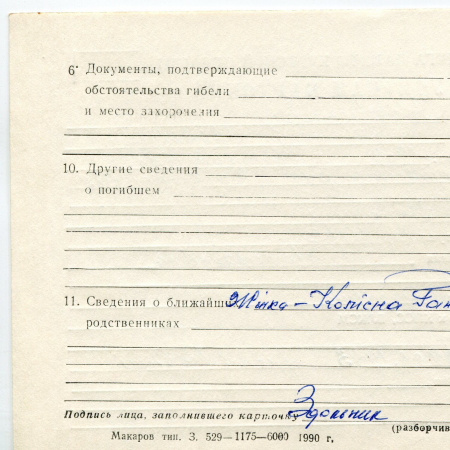 6· Документы, подтверждающие
обстоятельства гибели
и место захоронения
10. Другие сведения
о погибшем
11. Сведения о ближайш Жінка – Колісна Ган
родственниках
Подпись лица, заполнившего карточку
(разборчив
Макаров тип. З. 529—1175—6000 1990 г.